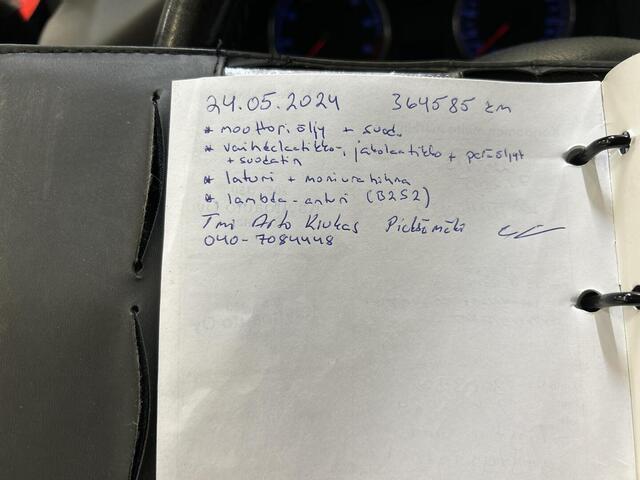 24.05.2024 364585 km
* moottoriöljy + suod.
* vaihdelaatikko-, jakolaatikko + peräöljyt
+ suodatin
* laturi + moniurahihna
* lambda-anturi (B2S2)
Tmi Arto Kiukas Pieksämäki
040-7084448